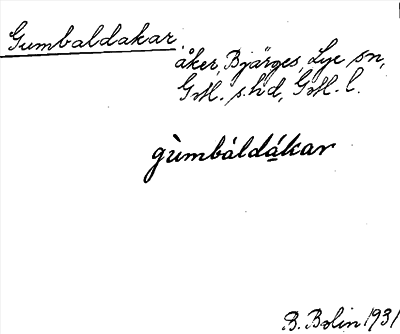 Gumbaldakar
åker, Bjärges, Lye sn,
Gotl. s. hd, Gotl. l.
gùmbáldákar
B. Bolin 1931